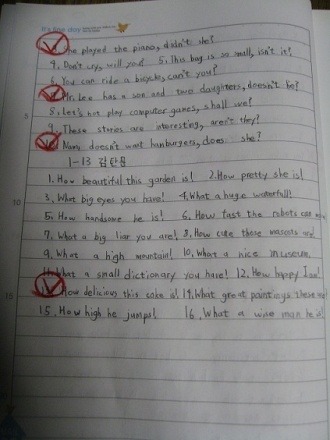 It's fine day
She played the piano, didn't she?
4. Don't cry, will you? 5. This bag is so small, isn't it?
6. You can ride a bicycle, can't you?
Mr. Lee has a son and two daughters, doesn't he?
5. Let's not play computer games, shall we?
9. These stories are interesting, aren't they?
10. Nami doesn't want hamburgers, does she?
1-13 감탄문
1. How beautiful this garden is! 2. How pretty she is!
3. What big eyes you have! 4. What a huge waterfall!
5. How handsome he is! 6. How fast the robots can
7. What a big liar you are! 8. How cute those mascots are!
9. What a high mountain! 10. What a nice museum.
11. What a small dictionary you have! 12. How happy I am!
How delicious this cake is! 14. What great paintings these
15. How high he jumps! 16. What a wise man he is!